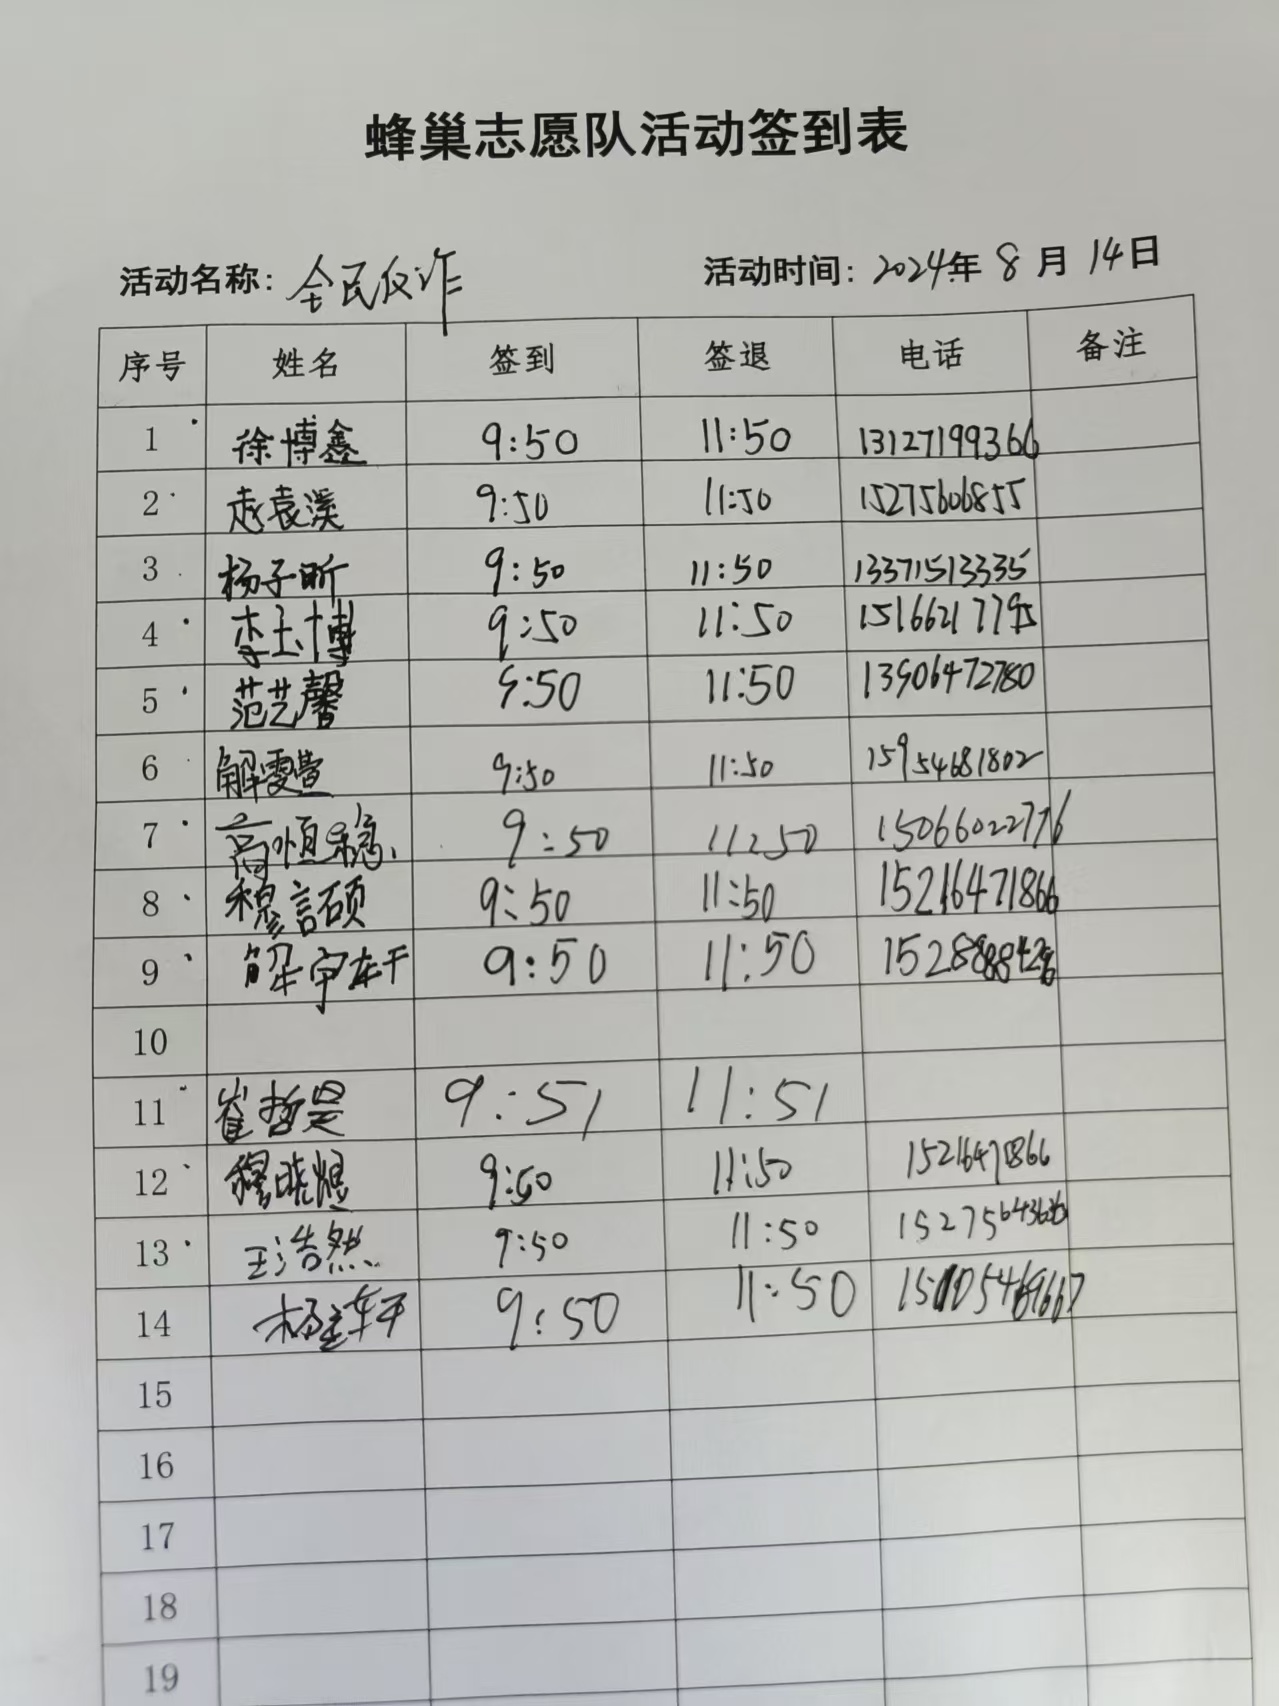 蜂巢志愿队活动签到表
活动名称：全民反诈 活动时间：2024年 8月 14日
序号 姓名 签到 签退 电话 备注
1 徐博鑫 9:50 11:50 13127199366
2 赵袁溪 9:50 11:50 15275606855
3 杨子昕 9:50 11:50 13371513335
4 李玉博 9:50 11:50 15166217795
5 范艺馨 9:50 11:50 13906472780
6 解雯萱 9:50 11:50 15954681802
7 高恒 9:50 11:50 15066022776
8 穆言硕 9:50 11:50 15216471866
9 解宇轩 9:50 11:50
10
11 崔哲昊 9:51 11:51
12 穆晓煜 9:50 11:50 15216471866
13 王浩然 9:50 11:50
14 9:50 11:50
15
16
17
18
19